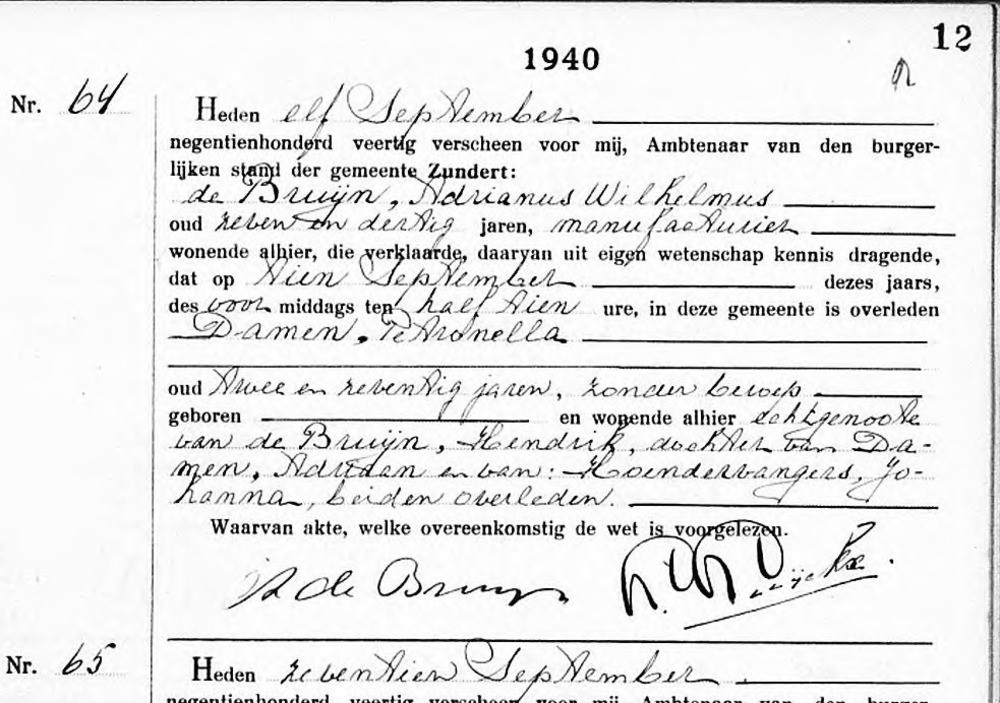 12
1940
Nr. 64
Heden elf September
negentienhonderd veertig verscheen voor mij, Ambtenaar van den burger-
lijken stand der gemeente Zundert:
de Bruijn, Adrianus Wilhelmus
oud zeven en dertig jaren, manufacturier
wonende alhier, die verklaarde, daarvan uit eigen wetenschap kennis dragende,
dat op tien September dezes jaars,
des voor middags ten half tien ure, in deze gemeente is overleden
Damen, Petronella
oud twee en zeventig jaren, zonder beroep
geboren en wonende alhier echtgenoote
van de Bruijn, Hendrik, dochter van Da-
men, Adriaan en van: Hoendervangers, Jo-
hanna, beiden overleden.
Waarvan akte, welke overeenkomstig de wet is voorgelezen.
de Bruijn
Nr. 65
Heden zeventien September
negentienhonderd veertig verscheen voor mij, Ambtenaar van den burger-